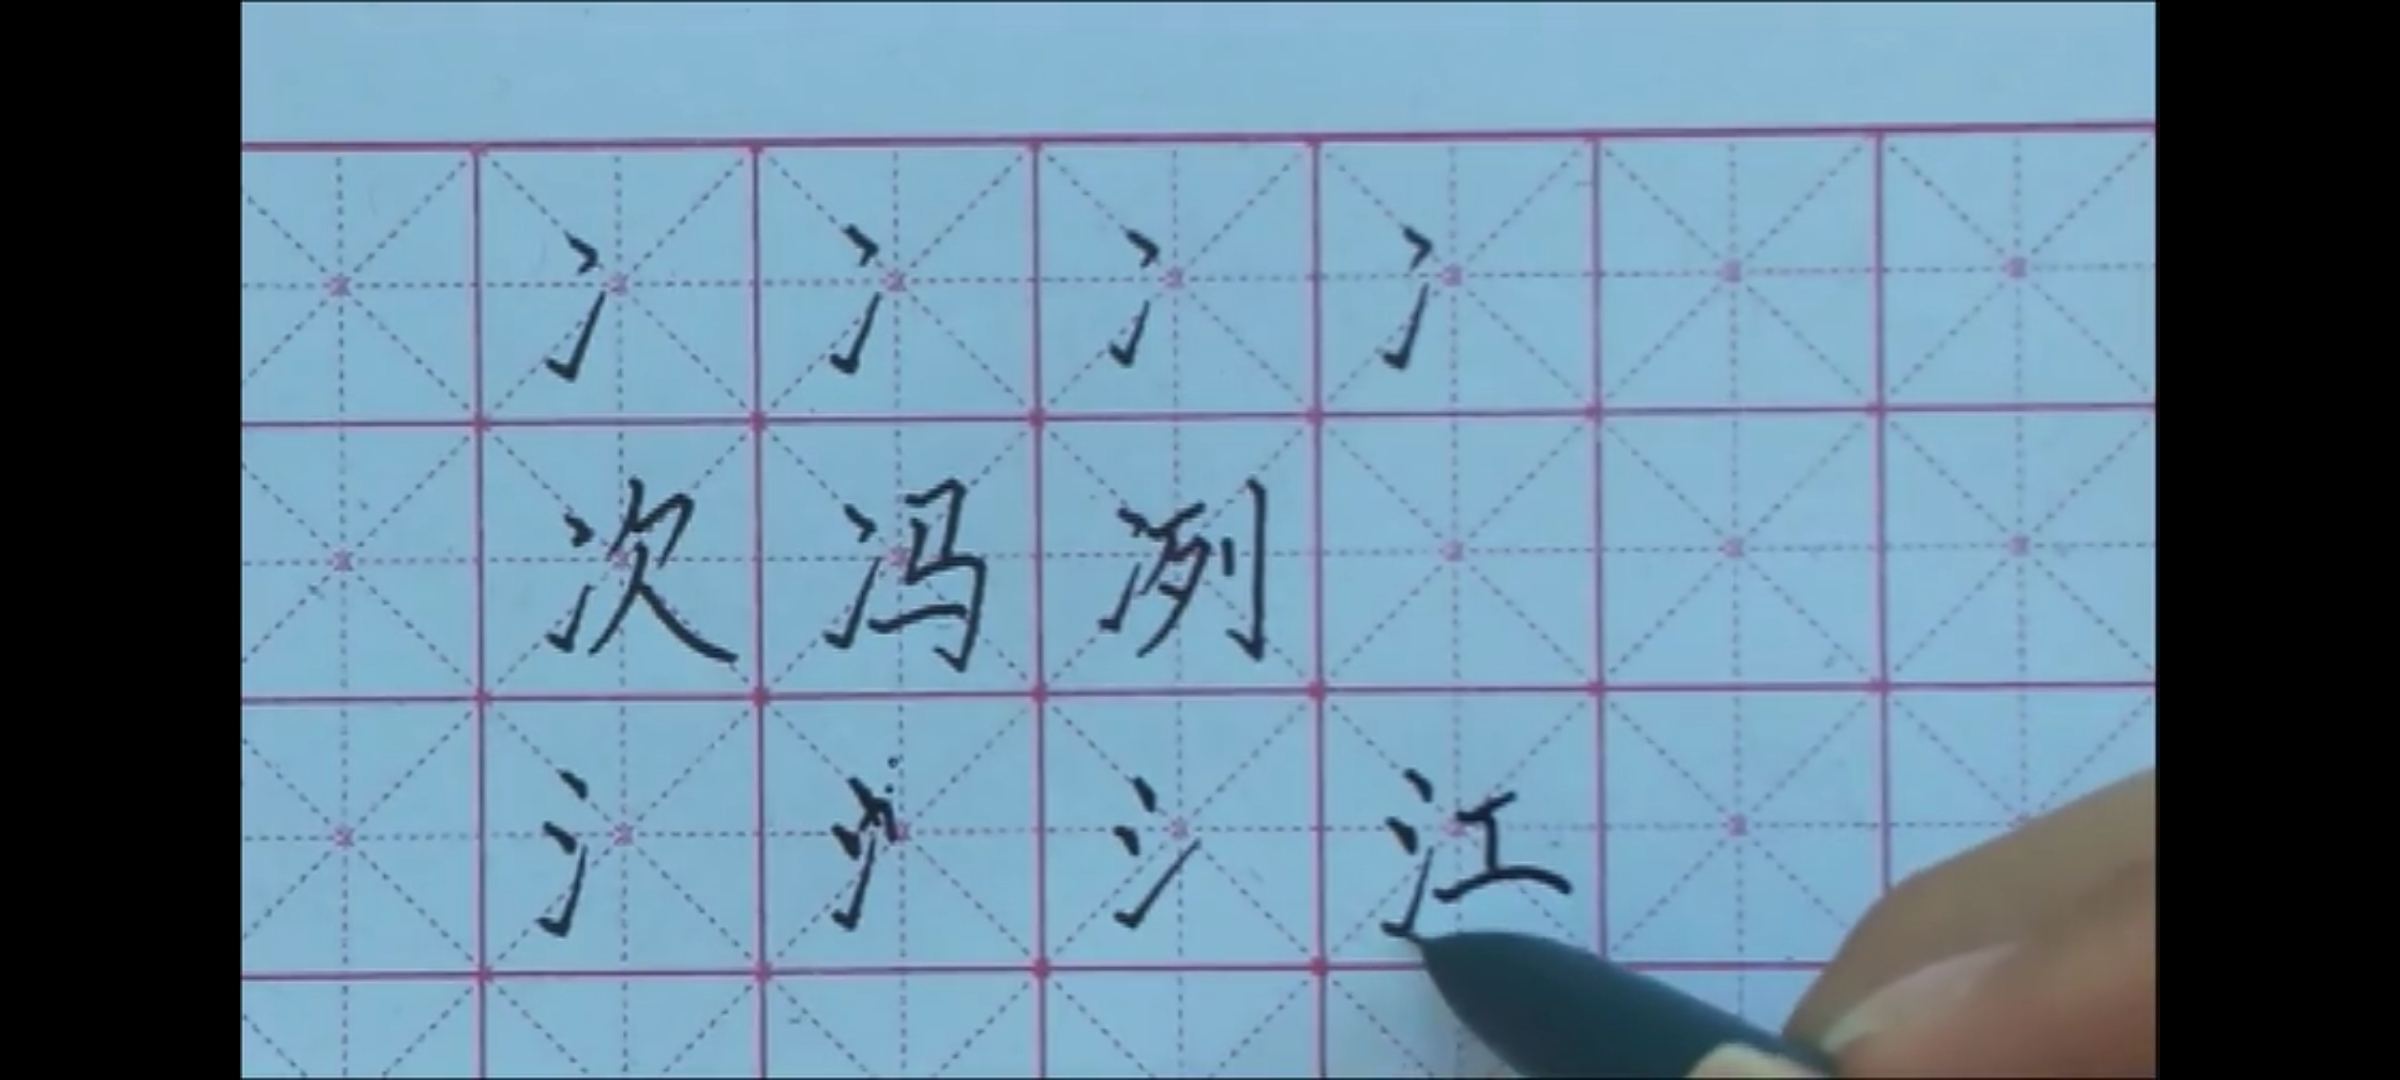 冫 冫 冫 冫
次 冯 冽
氵 氵 氵 江